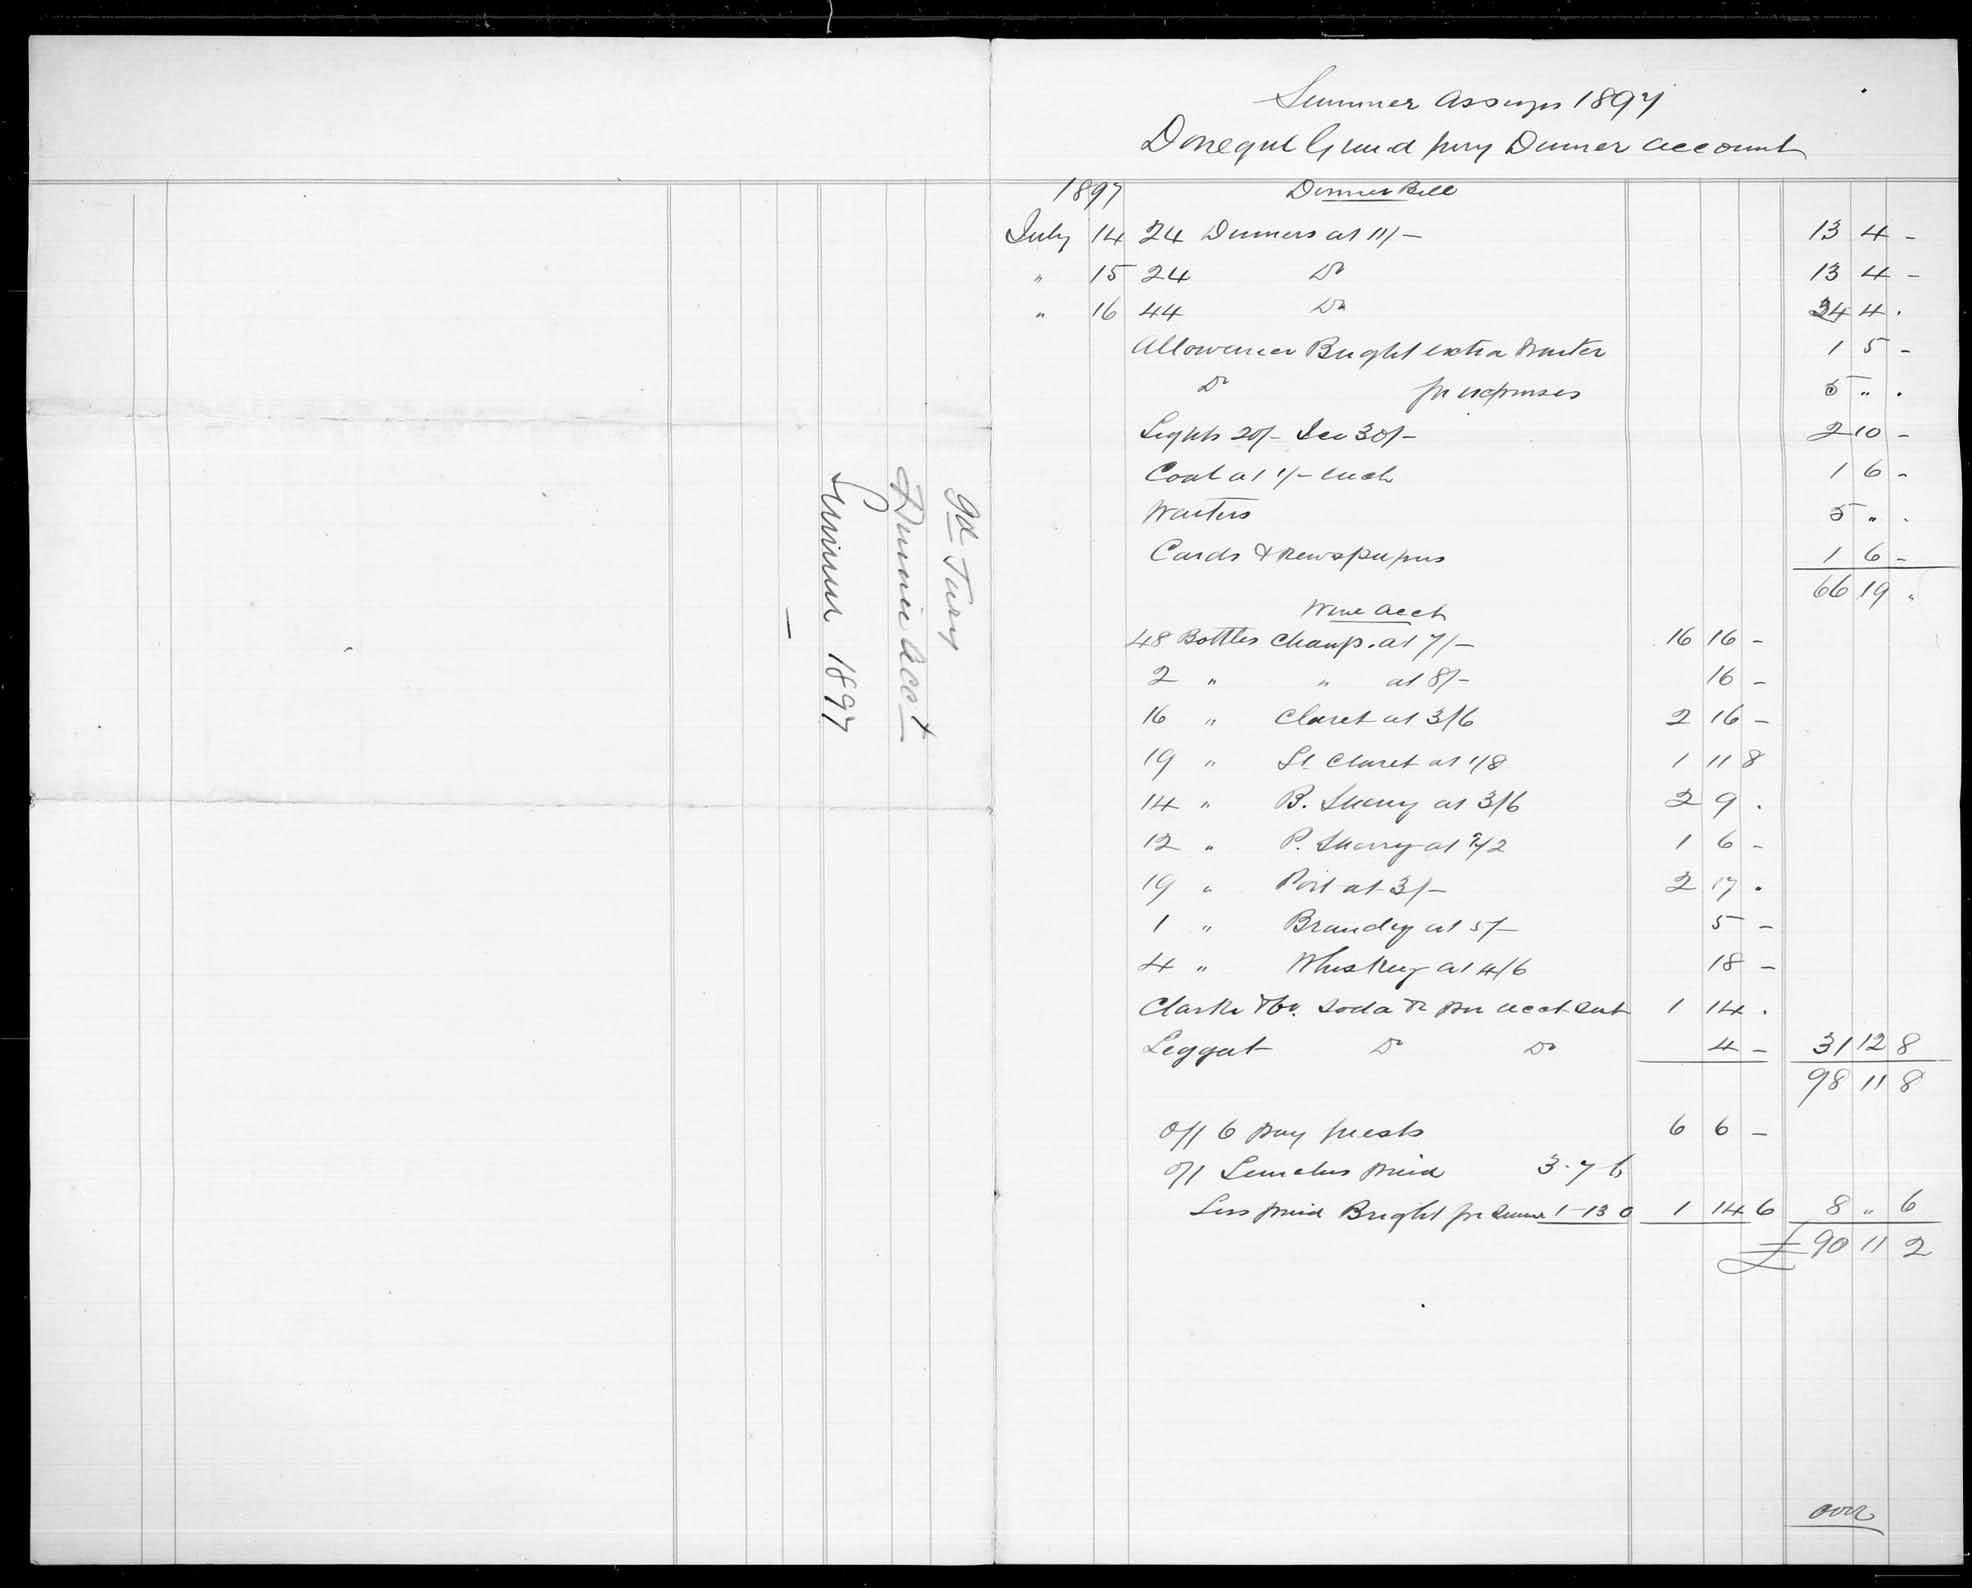 Gd Jury
Dinner Acct
Summer 1897
Summer Assizes 1897
Donegal Grand Jury Dinner Account
1897 Dinner Bill
July 14 24 Dinners at 11/- 13 4 -
" 15 24 Do 13 4 -
" 16 44 Do 24 4 .
Allowance Bright extra Waiter 1 5 -
Do for expenses 5 " .
Lights 20/- Ice 30/- 2 10 -
Coal at 1/- each 1 6 -
Waiters 5 " .
Cards & Newspapers 1 6 -
66 19 "
Wine Acct
48 Bottles Champ. at 7/- 16 16 -
2 " " at 8/- 16 -
16 " Claret at 3/6 2 16 -
19 " Lt Claret at 1/8 1 11 8
14 " B. Sherry at 3/6 2 9 .
12 " P. Sherry at 2/2 1 6 -
19 " Port at 3/- 2 17 .
1 " Brandy at 5/- 5 -
4 " Whiskey at 4/6 18 -
Clarke & Co. Soda &c per acct 1 14 .
Leggat Do Do 4 - 31 12 8
98 11 8
off 6 Day guests 6 6 -
off Lunches paid 3-7-6
Less paid Bright for 1-13 0 1 14 6 8 " 6
£ 90 11 2
over